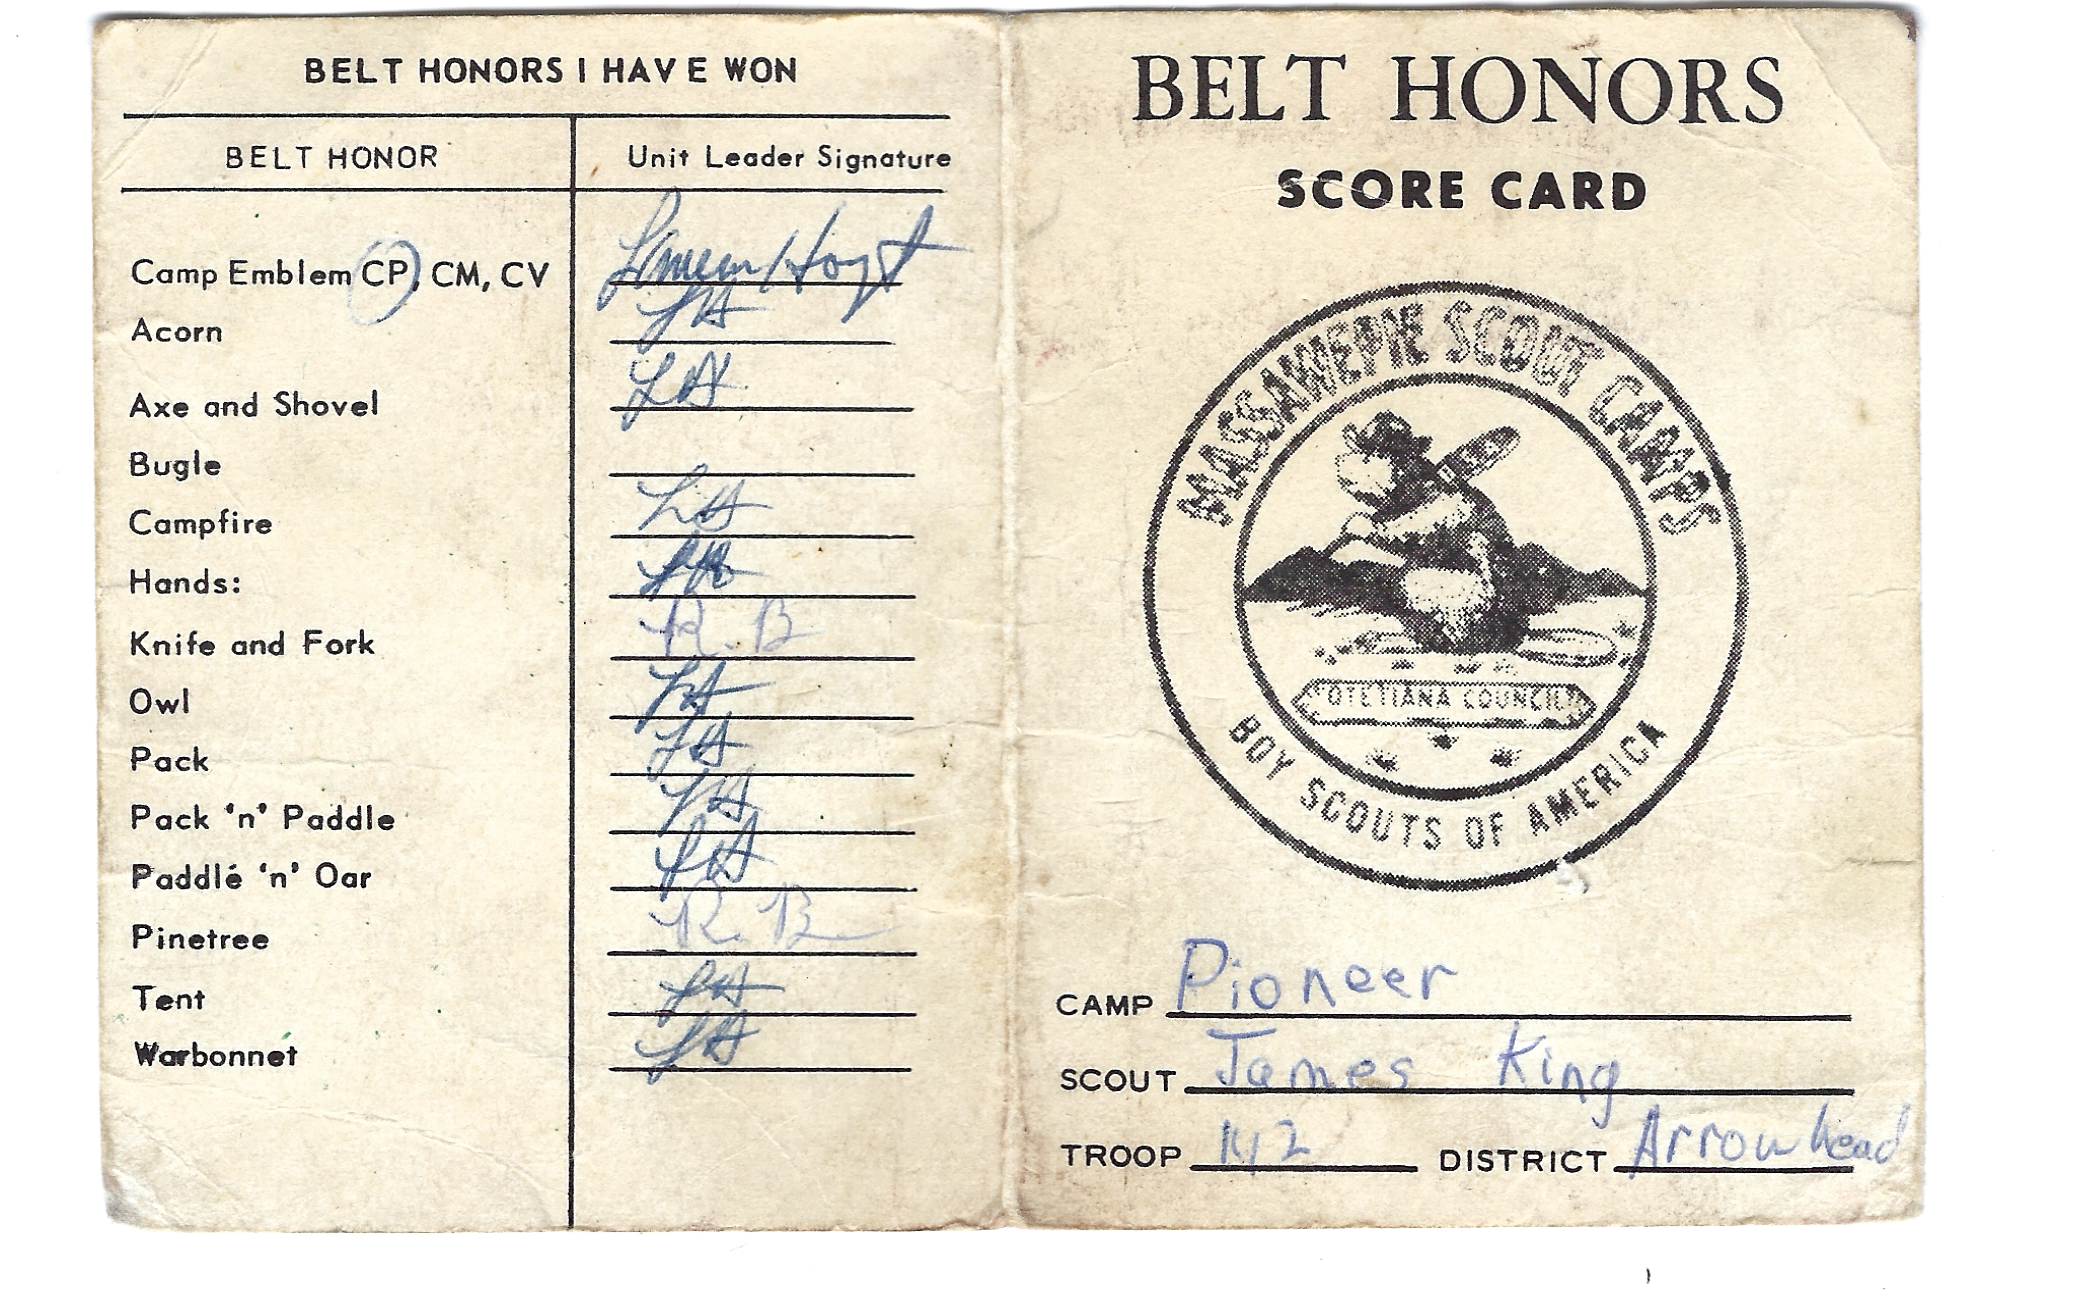 BELT HONORS I HAVE WON
BELT HONOR Unit Leader Signature
Camp Emblem CP, CM, CV Hoyt
Acorn LH
Axe and Shovel LH
Bugle
Campfire LH
Hands: LH
Knife and Fork R. B
Owl LH
Pack LH
Pack 'n' Paddle LH
Paddle 'n' Oar LH
Pinetree R. B
Tent LH
Warbonnet LH
BELT HONORS
SCORE CARD
MASSAWEPIE SCOUT CAMPS
OTETIANA COUNCIL
BOY SCOUTS OF AMERICA
CAMP Pioneer
SCOUT James King
TROOP DISTRICT Arrowhead